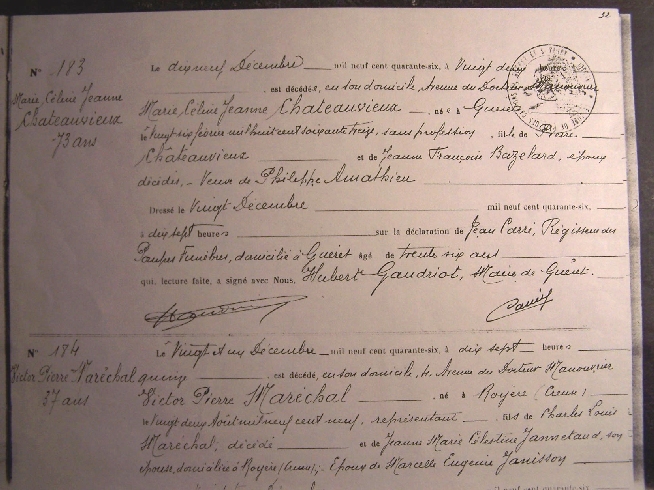 32
N° 183
Marie Céline Jeanne
Chateauvieux
73 ans
Le dix neuf Décembre mil neuf cent quarante-six, à Vingt deux heures
, est décédée, en son domicile, Avenue du Docteur Manouvrier
Marie Céline Jeanne Chateauvieux, née à Guéret
le vingt six février mil huit cent soixante treize, sans profession, fille de
Châteauvieux et de Jeanne Françoise Bazelard, époux
décédés, - Veuve de Philippe Amathieu
Dressé le Vingt Décembre mil neuf cent quarante-six,
à dix sept heures sur la déclaration de Jean Carré, Régisseur des
Pompes Funèbres, domicilié à Guéret âgé de trente six ans
qui, lecture faite, a signé avec Nous, Hubert Gaudriot, Maire de Guéret.
N° 184
Victor Pierre Maréchal
37 ans
Le Vingt et un Décembre mil neuf cent quarante-six, à dix sept heures
quinze, est décédé, en son domicile, 4, Avenue du Docteur Manouvrier
Victor Pierre Maréchal né à Royère (Creuse)
le vingt deux Août mil neuf cent neuf, représentant fils de Charles Louis
Maréchal, décédé et de Jeanne Marie Célestine Jannetaud, son
épouse, domiciliée à Royère (Creuse); - Epoux de Marcelle Eugénie Janisson
mil neuf cent quarante-six